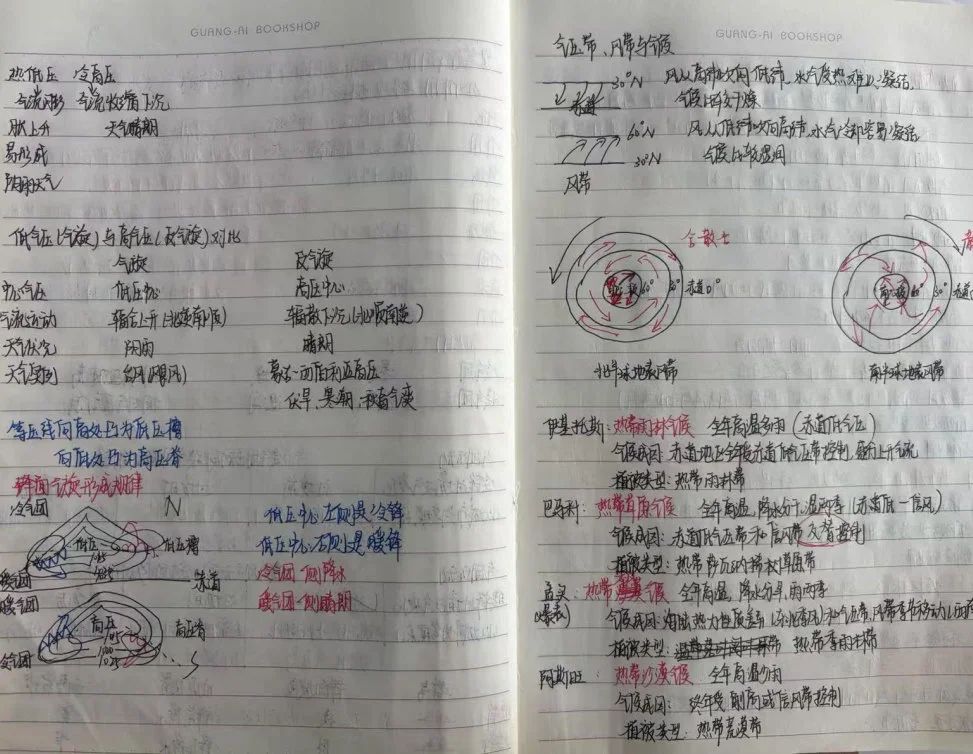 GUANG-AI BOOKSHOP
热低压 冷高压
气流收缩下沉
天气晴朗
易形成
阴雨天气
低气压(气旋)与高气压(反气旋)对比
气旋 反气旋
中心气压 低压中心 高压中心
气流运动 辐合上升 辐散下沉
天气状况 阴雨 晴朗
天气实例 台风(飓风) 蒙古—西伯利亚高压
伏旱、寒潮、秋高气爽
等压线向高处凸为低压槽
向低处凸为高压脊
锋面气旋形成规律
冷气团 N 低压中心左侧是冷锋
低压 低压槽 低压中心右侧是暖锋
暖气团 赤道 冷气团一侧降水
暖气团 暖气团一侧晴朗
高压 高压脊
冷气团 S
GUANG-AI BOOKSHOP
气压带、风带与气候
30°N 风从高纬吹向低纬,水气受热难以凝结,
赤道 气候比较干燥
60°N 风从低纬吹向高纬,水气冷却容易凝结
30°N 气候比较湿润
风带
60° 30° 赤道0°
60° 30°
北半球地表风带 南半球地表风带
伊基托斯:热带雨林气候 全年高温多雨(赤道低气压)
气候成因:赤道地区全年受赤道低气压带控制,盛行上升气流
植被类型:热带雨林带
巴马科:热带草原气候 全年高温,降水分干、湿两季(赤道低—信风)
气候成因:赤道低气压带和信风带交替控制
植被类型:热带稀树草原带
孟买:热带季风气候 全年高温,降水分旱、雨两季
气候成因:海陆热力性质差异(东北季风)和气压带、风带季节移动
植被类型: 热带季雨林带
阿斯旺:热带沙漠气候 全年高温少雨
气候成因:终年受副高或信风带控制
植被类型:热带荒漠带